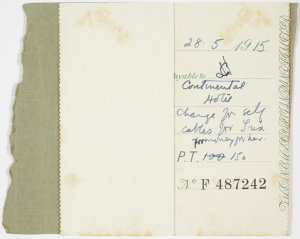 28.5 1915
Payable to
Continental
Hotel
Change for self
cables for
P.T. 100 150
No F 487242